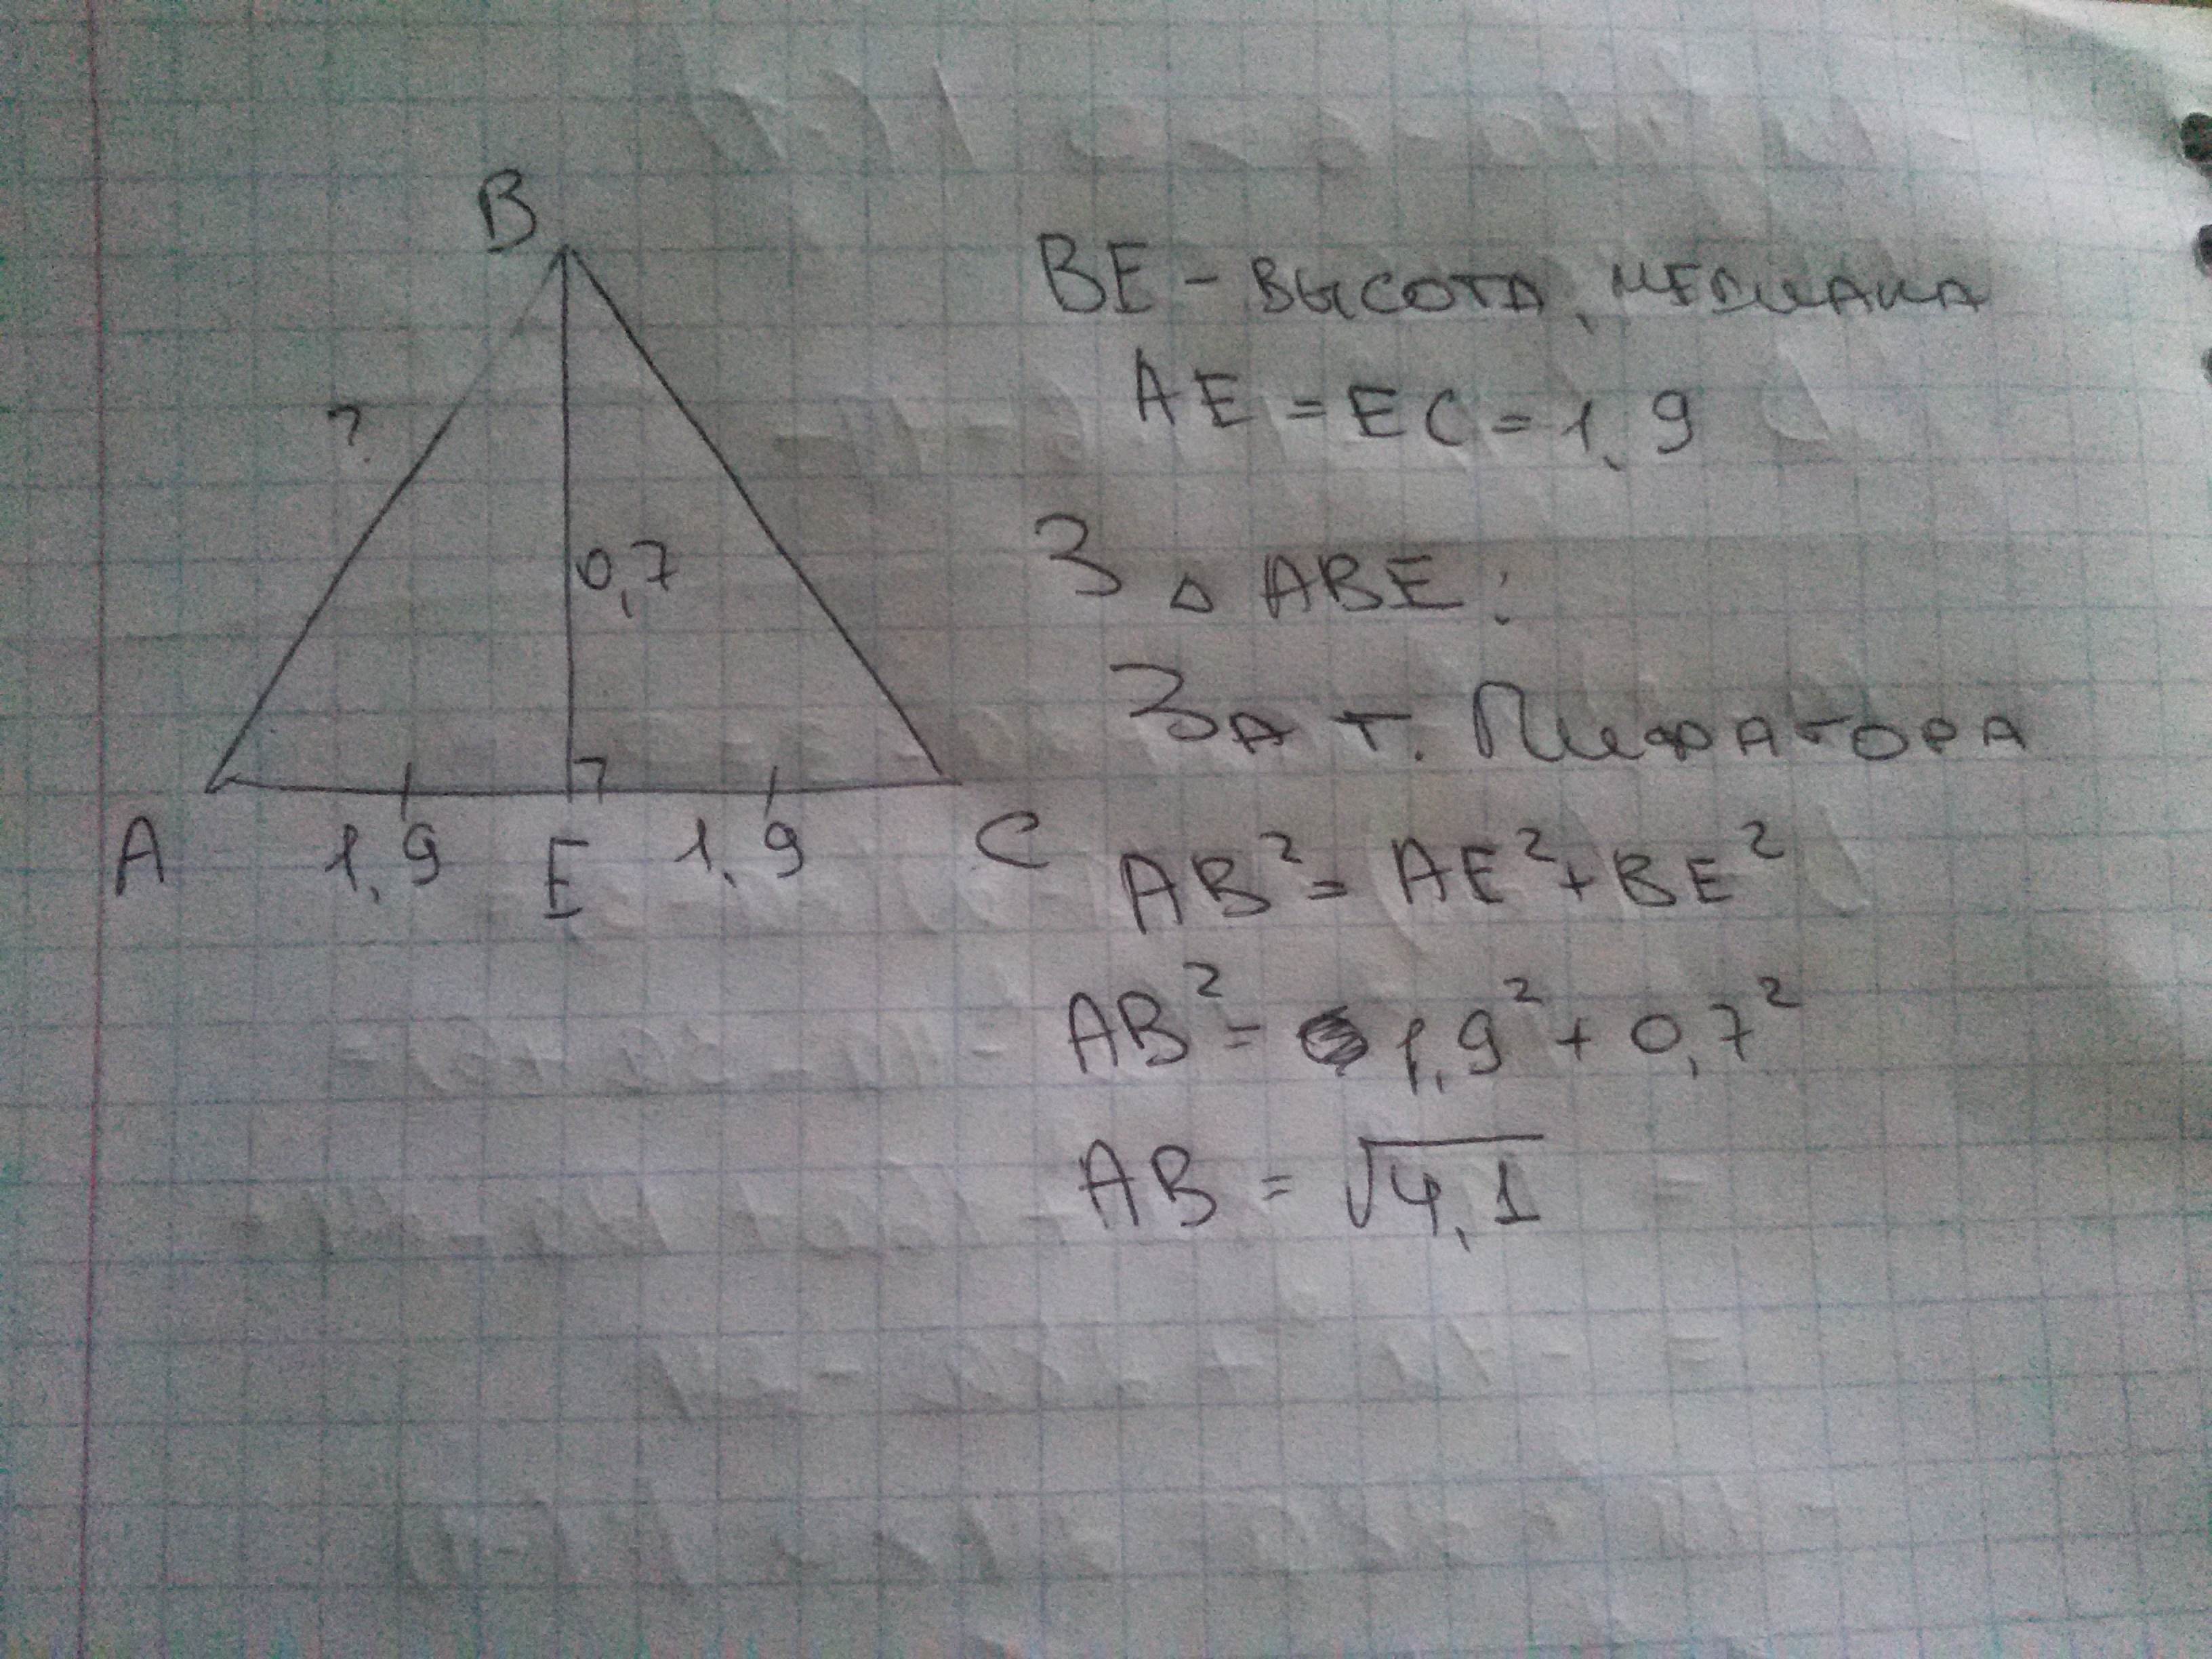 B
?
0,7
A 1,9 E 1,9 C
BE - высота, медиана
AE = EC = 1,9
З △ ABE:
За т. Пифагора
AB² = AE² + BE²
AB² = 1,9² + 0,7²
AB = √4,1